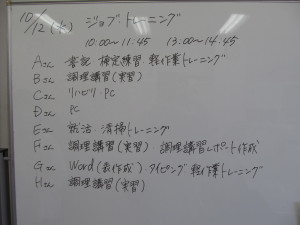 10/12(火) ジョブトレーニング
10:00～11:45 13:00～14:45
Aさん 簿記 検定練習・軽作業トレーニング
Bさん 調理講習(実習)
Cさん リハビリ・PC
Dさん PC
Eさん 就活・清掃トレーニング
Fさん 調理講習(実習) 調理講習レポート作成
Gさん Word(表作成)・タイピング 軽作業トレーニング
Hさん 調理講習(実習)